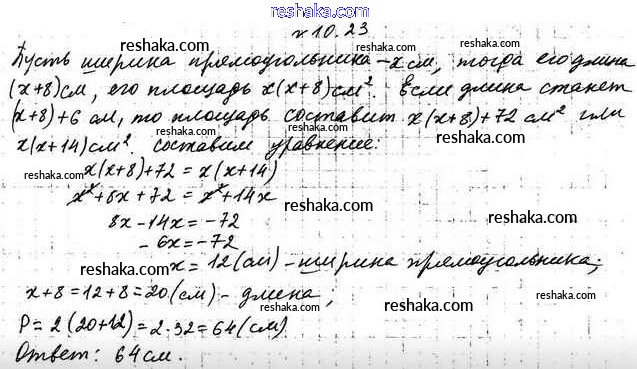 reshaka.com
№10.23
Пусть ширина прямоугольника - x см, тогда его длина
(x+8) см, его площадь x(x+8) см². Если длина станет
(x+8)+6 см, то площадь составит x(x+8)+72 см² или
x(x+14) см². составим уравнение:
x(x+8)+72 = x(x+14)
x²+8x+72 = x²+14x
8x-14x = -72
-6x = -72
x = 12 (см) - ширина прямоугольника;
x+8 = 12+8 = 20 (см) - длина;
P = 2(20+12) = 2·32 = 64 (см)
Ответ: 64 см.
reshaka.com
reshaka.com
reshaka.com
reshaka.com
reshaka.com
reshaka.com
reshaka.com
reshaka.com
reshaka.com
reshaka.com
reshaka.com
reshaka.com
reshaka.com